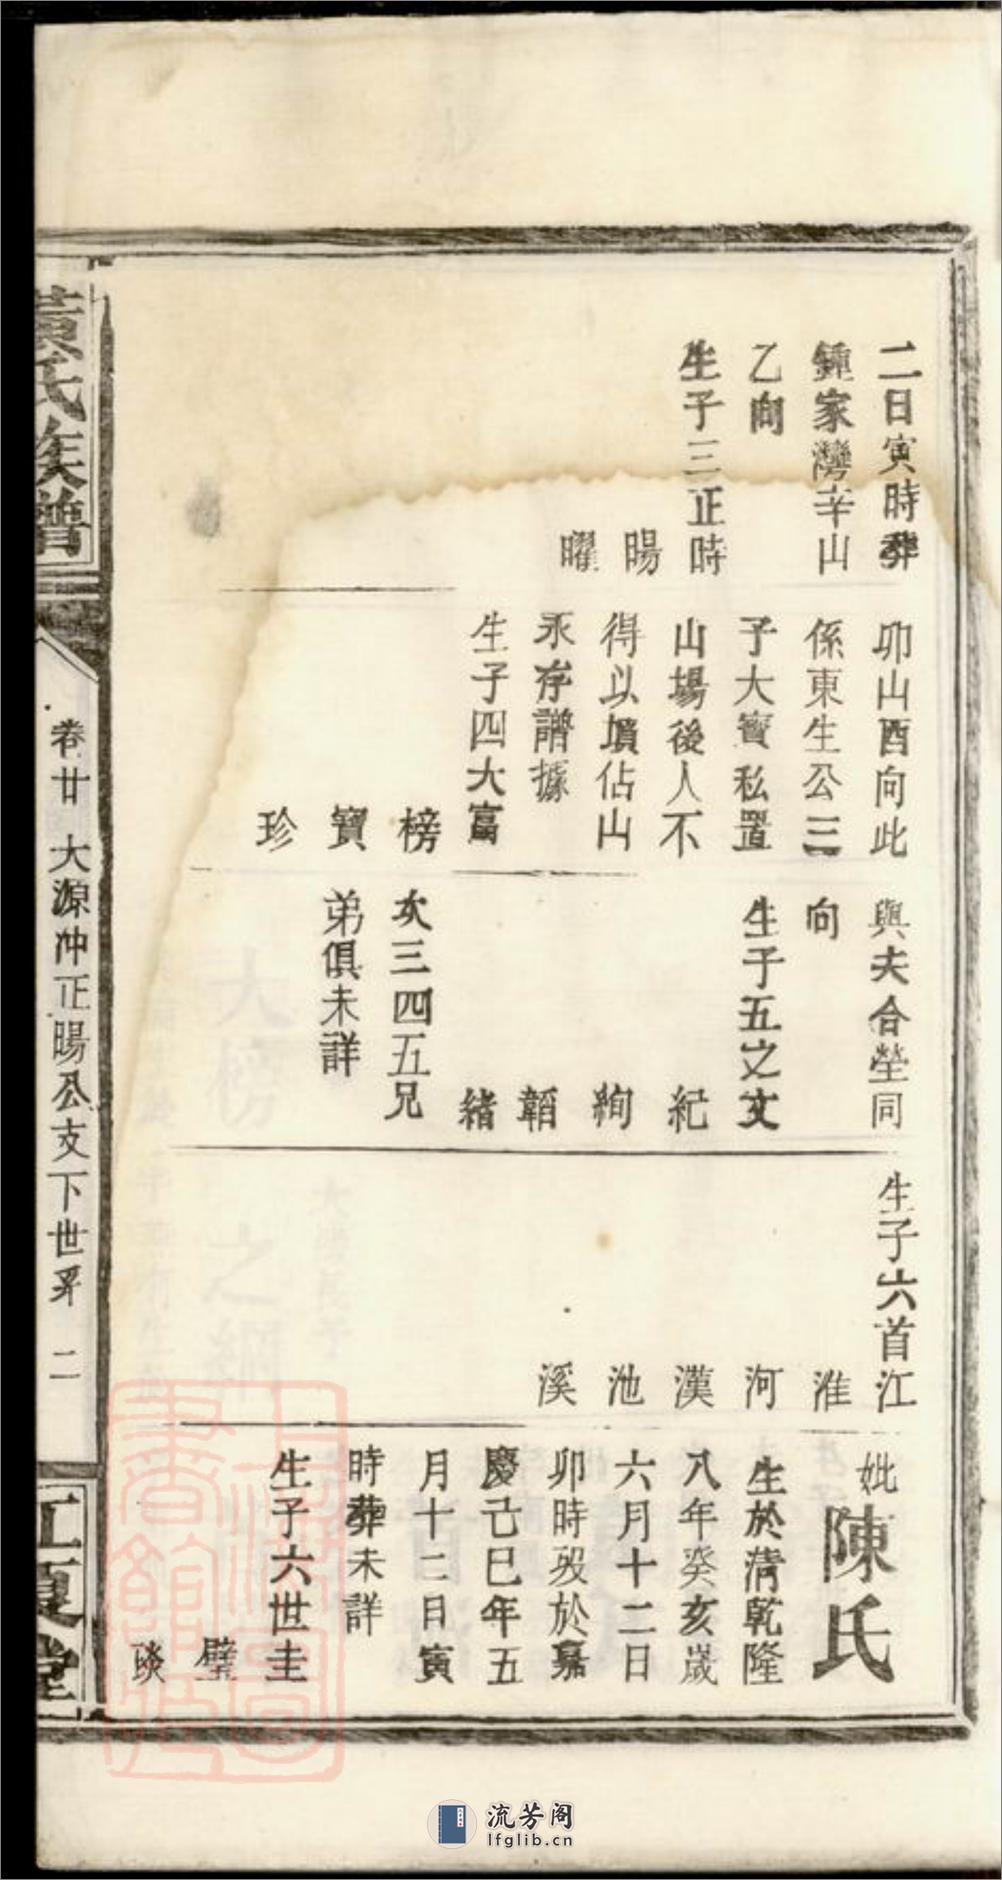 二日寅時葬
鍾家灣辛山
乙向
生子三正時
暘
曜
卯山酉向此
係東生公三
子大寶私置
山場後人不
得以墳佔山
永存譜據
生子四大富
榜
寶
珍
與夫合塋同
向
生子五之文
紀
絢
韜
緒
次三四五兄
弟俱未詳
生子六首江
淮
河
漢
池
溪
妣陳氏
生於清乾隆
八年癸亥歲
六月十二日
卯時歿於嘉
慶己巳年五
月十二日寅
時葬未詳
生子六世圭
璧
琰
黃氏族譜
卷廿 大源冲正暘公支下世系 二
江夏堂
流芳阁
lfglib.cn